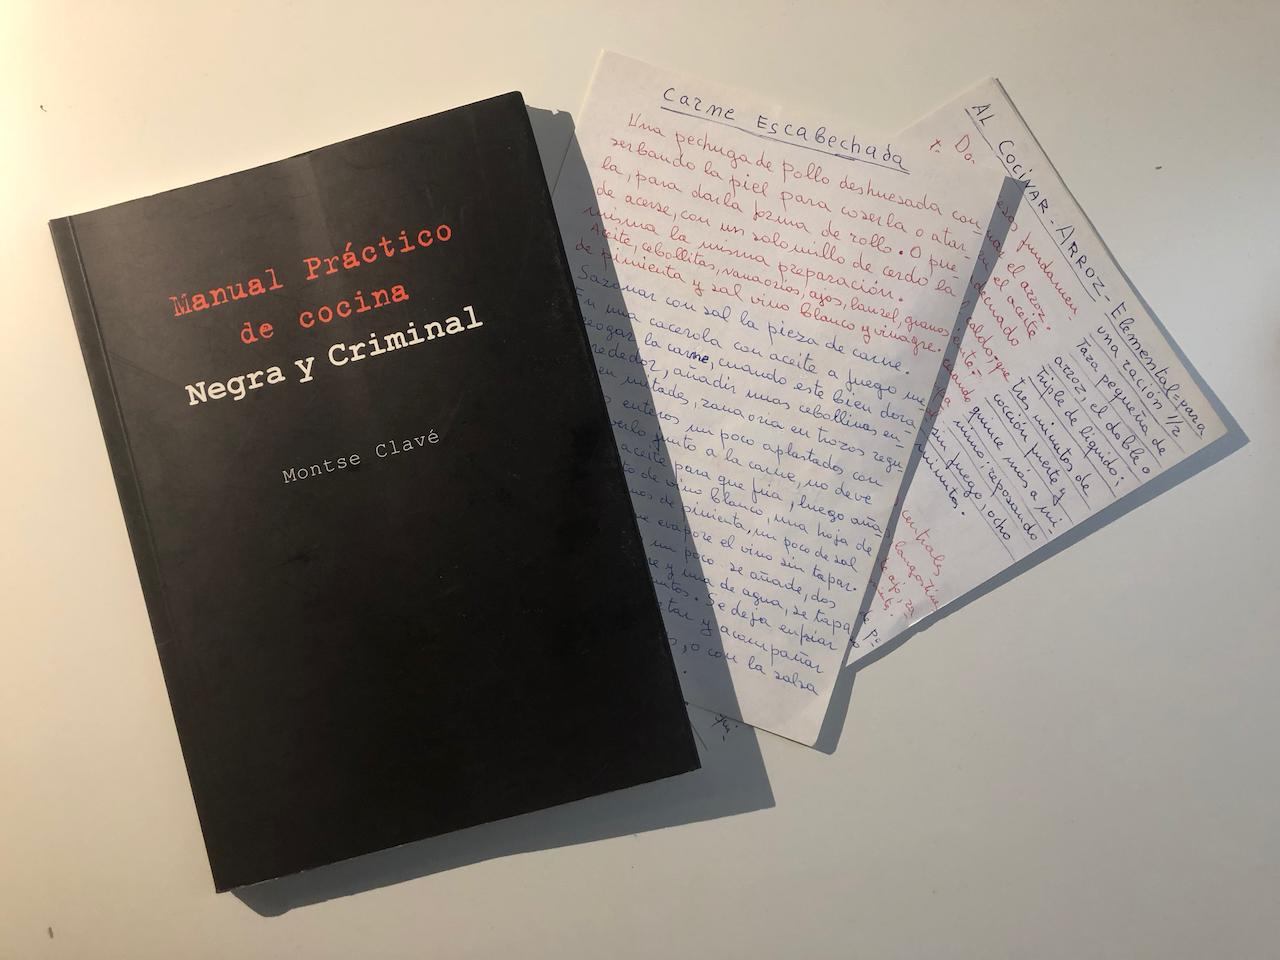 Manual Práctico
de cocina
Negra y Criminal
Montse Clavé
Carne Escabechada
Una pechuga de pollo deshuesada con
serbando la piel para coserla o atar
la, para darla forma de rollo. O pue
de acerse, con un solomillo de cerdo la
misma la misma preparación.
Aceite, cebollitas, zanaorias, ajos, laurel, granos
de pimienta y sal vino blanco y vinagre.
Sazonar con sal la pieza de carne.
En una cacerola con aceite a fuego
la carne, cuando este bien dora
rededor, añadir unas cebollinas en
en mitades, zanaoria en trozos regu
enteros un poco aplastados con
junto a la carne, no deve
aceite para que fria, luego aña
de vino blanco, una hoja de
de pimienta, un poco de sal
evapore el vino sin tapar.
un poco se añade, dos
y una de agua, se tapa
Se deja enfriar
y acompañar
o con la salsa
AL COCINAR - ARROZ - Elemental = para
una ración 1/2
Taza pequeña de
arroz, el doble o
triple de liquido;
tres minutos de
cocción fuerte y
quince más a mi
nimo; reposando
sin fuego, ocho
minutos.
fundamen
el arroz.
el aceite
dorado
caldo, que
cuando
centrales
langostino
ajo,